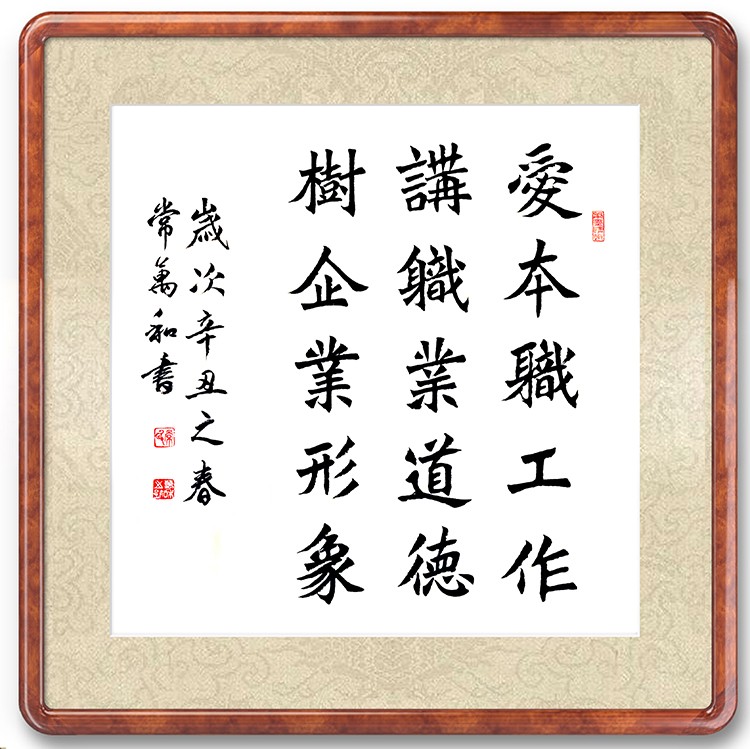 愛本職工作
講職業道德
樹企業形象
歲次辛丑之春
常萬和書